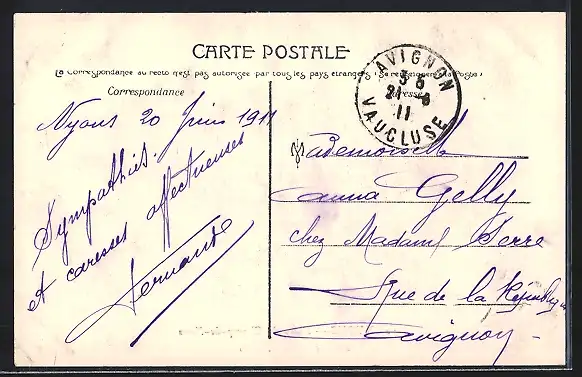 CARTE POSTALE
La Correspondance au recto n'est pas autorisée par tous les pays étrangers (Se renseigner à la Poste)
Correspondance
Adresse
AVIGNON
21-6
11
VAUCLUSE
Nyons 20 Juin 1911
Sympathies
et caresses affectueuses
Fernande
Mademoiselle
Anna Gelly
chez Madame Serre
Rue de la République
Avignon